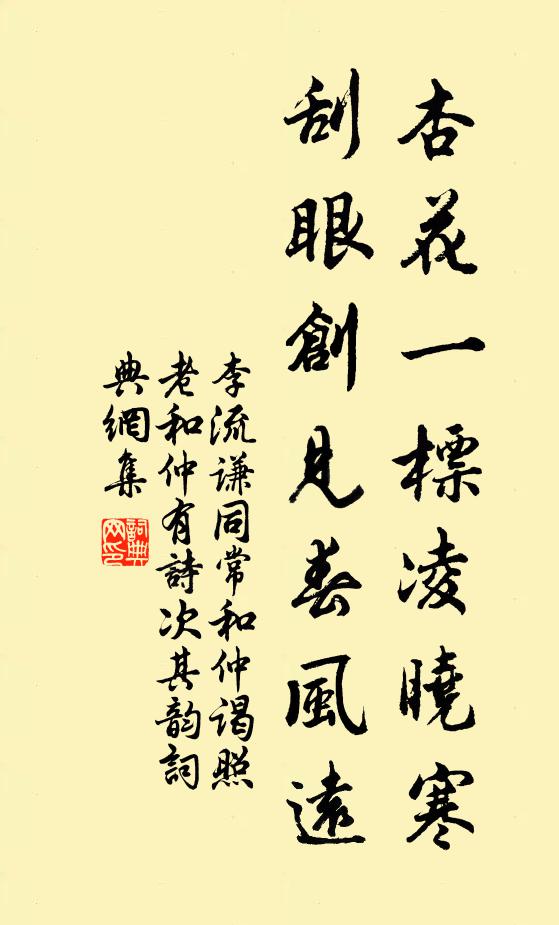 杏花一標凌曉寒
刮眼創見春風遠
李流謙同常和仲謁照
老和仲有詩次其韵詞
典網集
詞典
网印